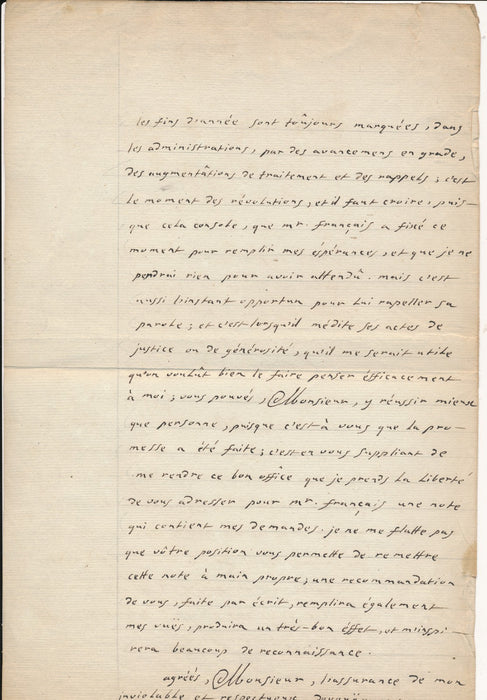 les fins d'année sont toûjours marquées, dans
les administrations, par des avancemens en grade,
des augmentâtions de traitement et des rappels; c'est
le moment des révolutions, et il faut croire, puis-
que cela console, que mr. français a fixé ce
moment pour remplir mes éspérances, et que je ne
perdrai rien pour avoir attendû. mais c'est
aussi l'instant opportun pour lui rapeller sa
parole; et c'est lorsqu'il médite ses actes de
justice ou de générosité, qu'il me serait utile
qu'on voulût bien le faire penser éfficacement
à moi; vous pouvés, Monsieur, y réussir mieux
que personne, puisque c'est à vous que la pro-
messe a été faite; c'est en vous suppliant de
me rendre ce bon office que je prends la liberté
de vous adresser pour mr. français une note
qui contient mes demandes. je ne me flatte pas
que vôtre position vous permette de remettre
cette note à main propre; une recommandation
de vous, faite par écrit, remplira également
mes vuës, produira un très-bon éffet, et m'inspi-
rera beaucoup de reconnaissance.
agréés, Monsieur, l'assurance de mon
inviolable et respectueux